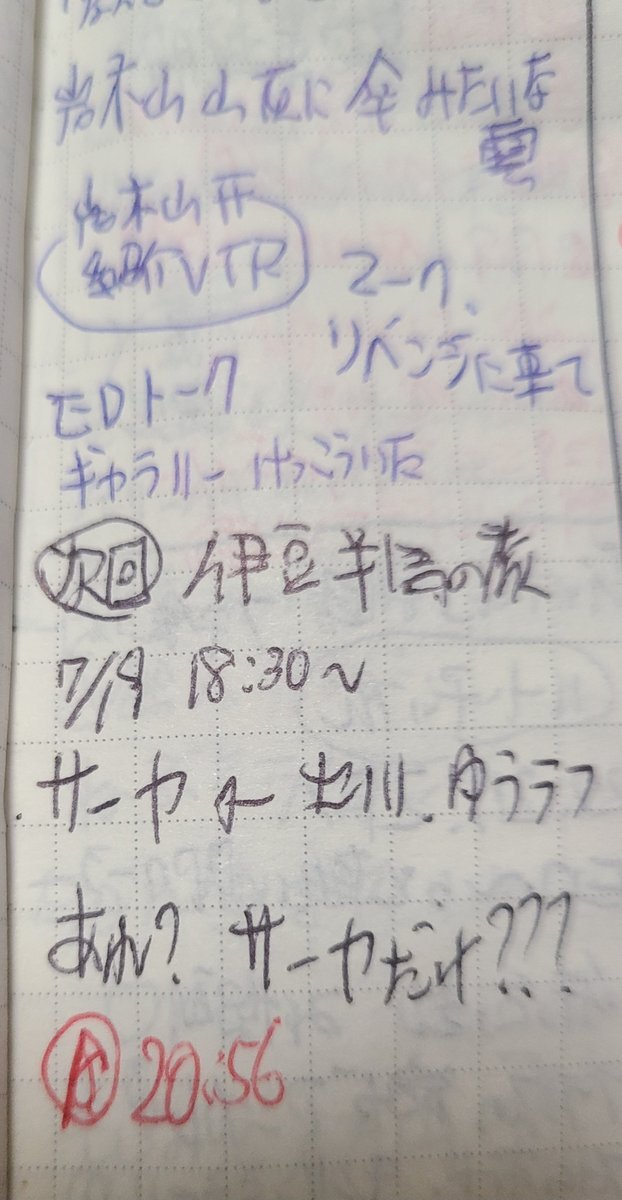 岩木山 山頂に 傘みたいな
雲
岩木山
紹介VTR
マーク、
リベンジに来て
EDトーク
ギャラリー けっこういた
次回 伊豆半島の旅
7/19 18:30~
サーヤ
あれ? サーヤだけ???
20:56